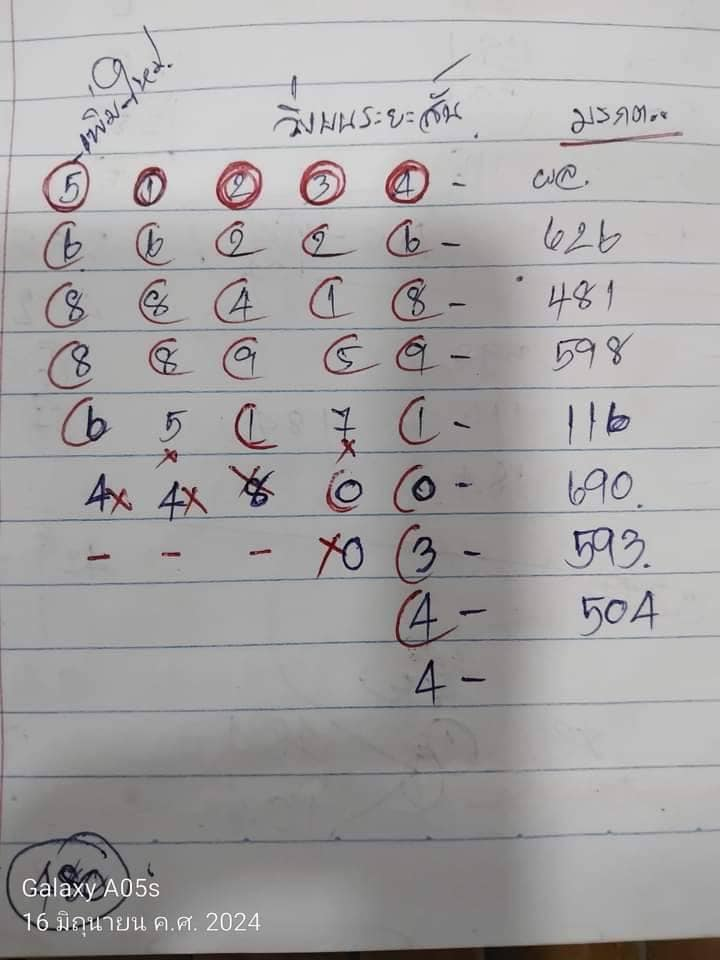 เพิ่ม
วิ่งบนระยะสั้น มรกต..
5 1 2 3 4 - ผล.
6 6 2 2 6 - 626
8 8 4 1 8 - 481
8 8 9 5 9 - 598
6 5 1 7 1 - 116
x x
4x 4x 8 0 0 - 690.
- - - x0 3 - 593.
4 - 504
4 -
Galaxy A05s
16 มิถุนายน ค.ศ. 2024